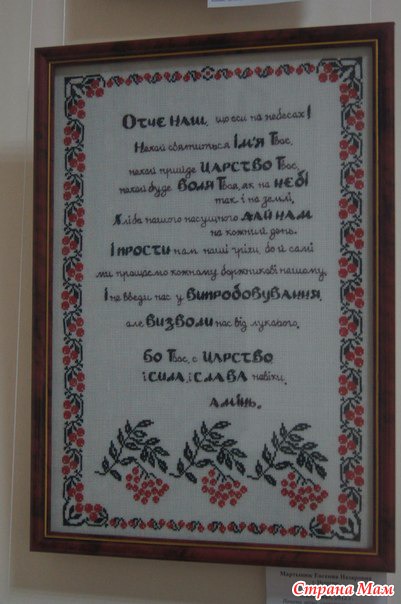 Отче наш, що єси на небесах!
Нехай святиться Ім'я Твоє,
нехай прийде Царство Твоє,
нехай буде воля Твоя, як на небі
так і на землі,
Хліба нашого насущного дай нам
на кожний день.
І прости нам наші гріхи, бо й самі
ми прощаємо кожному боржникові нашому.
І не введи нас у випробовування,
але визволи нас від лукавого,
Бо Твоє, є Царство
і сила, і слава навіки.
Амінь.
Страна Мам